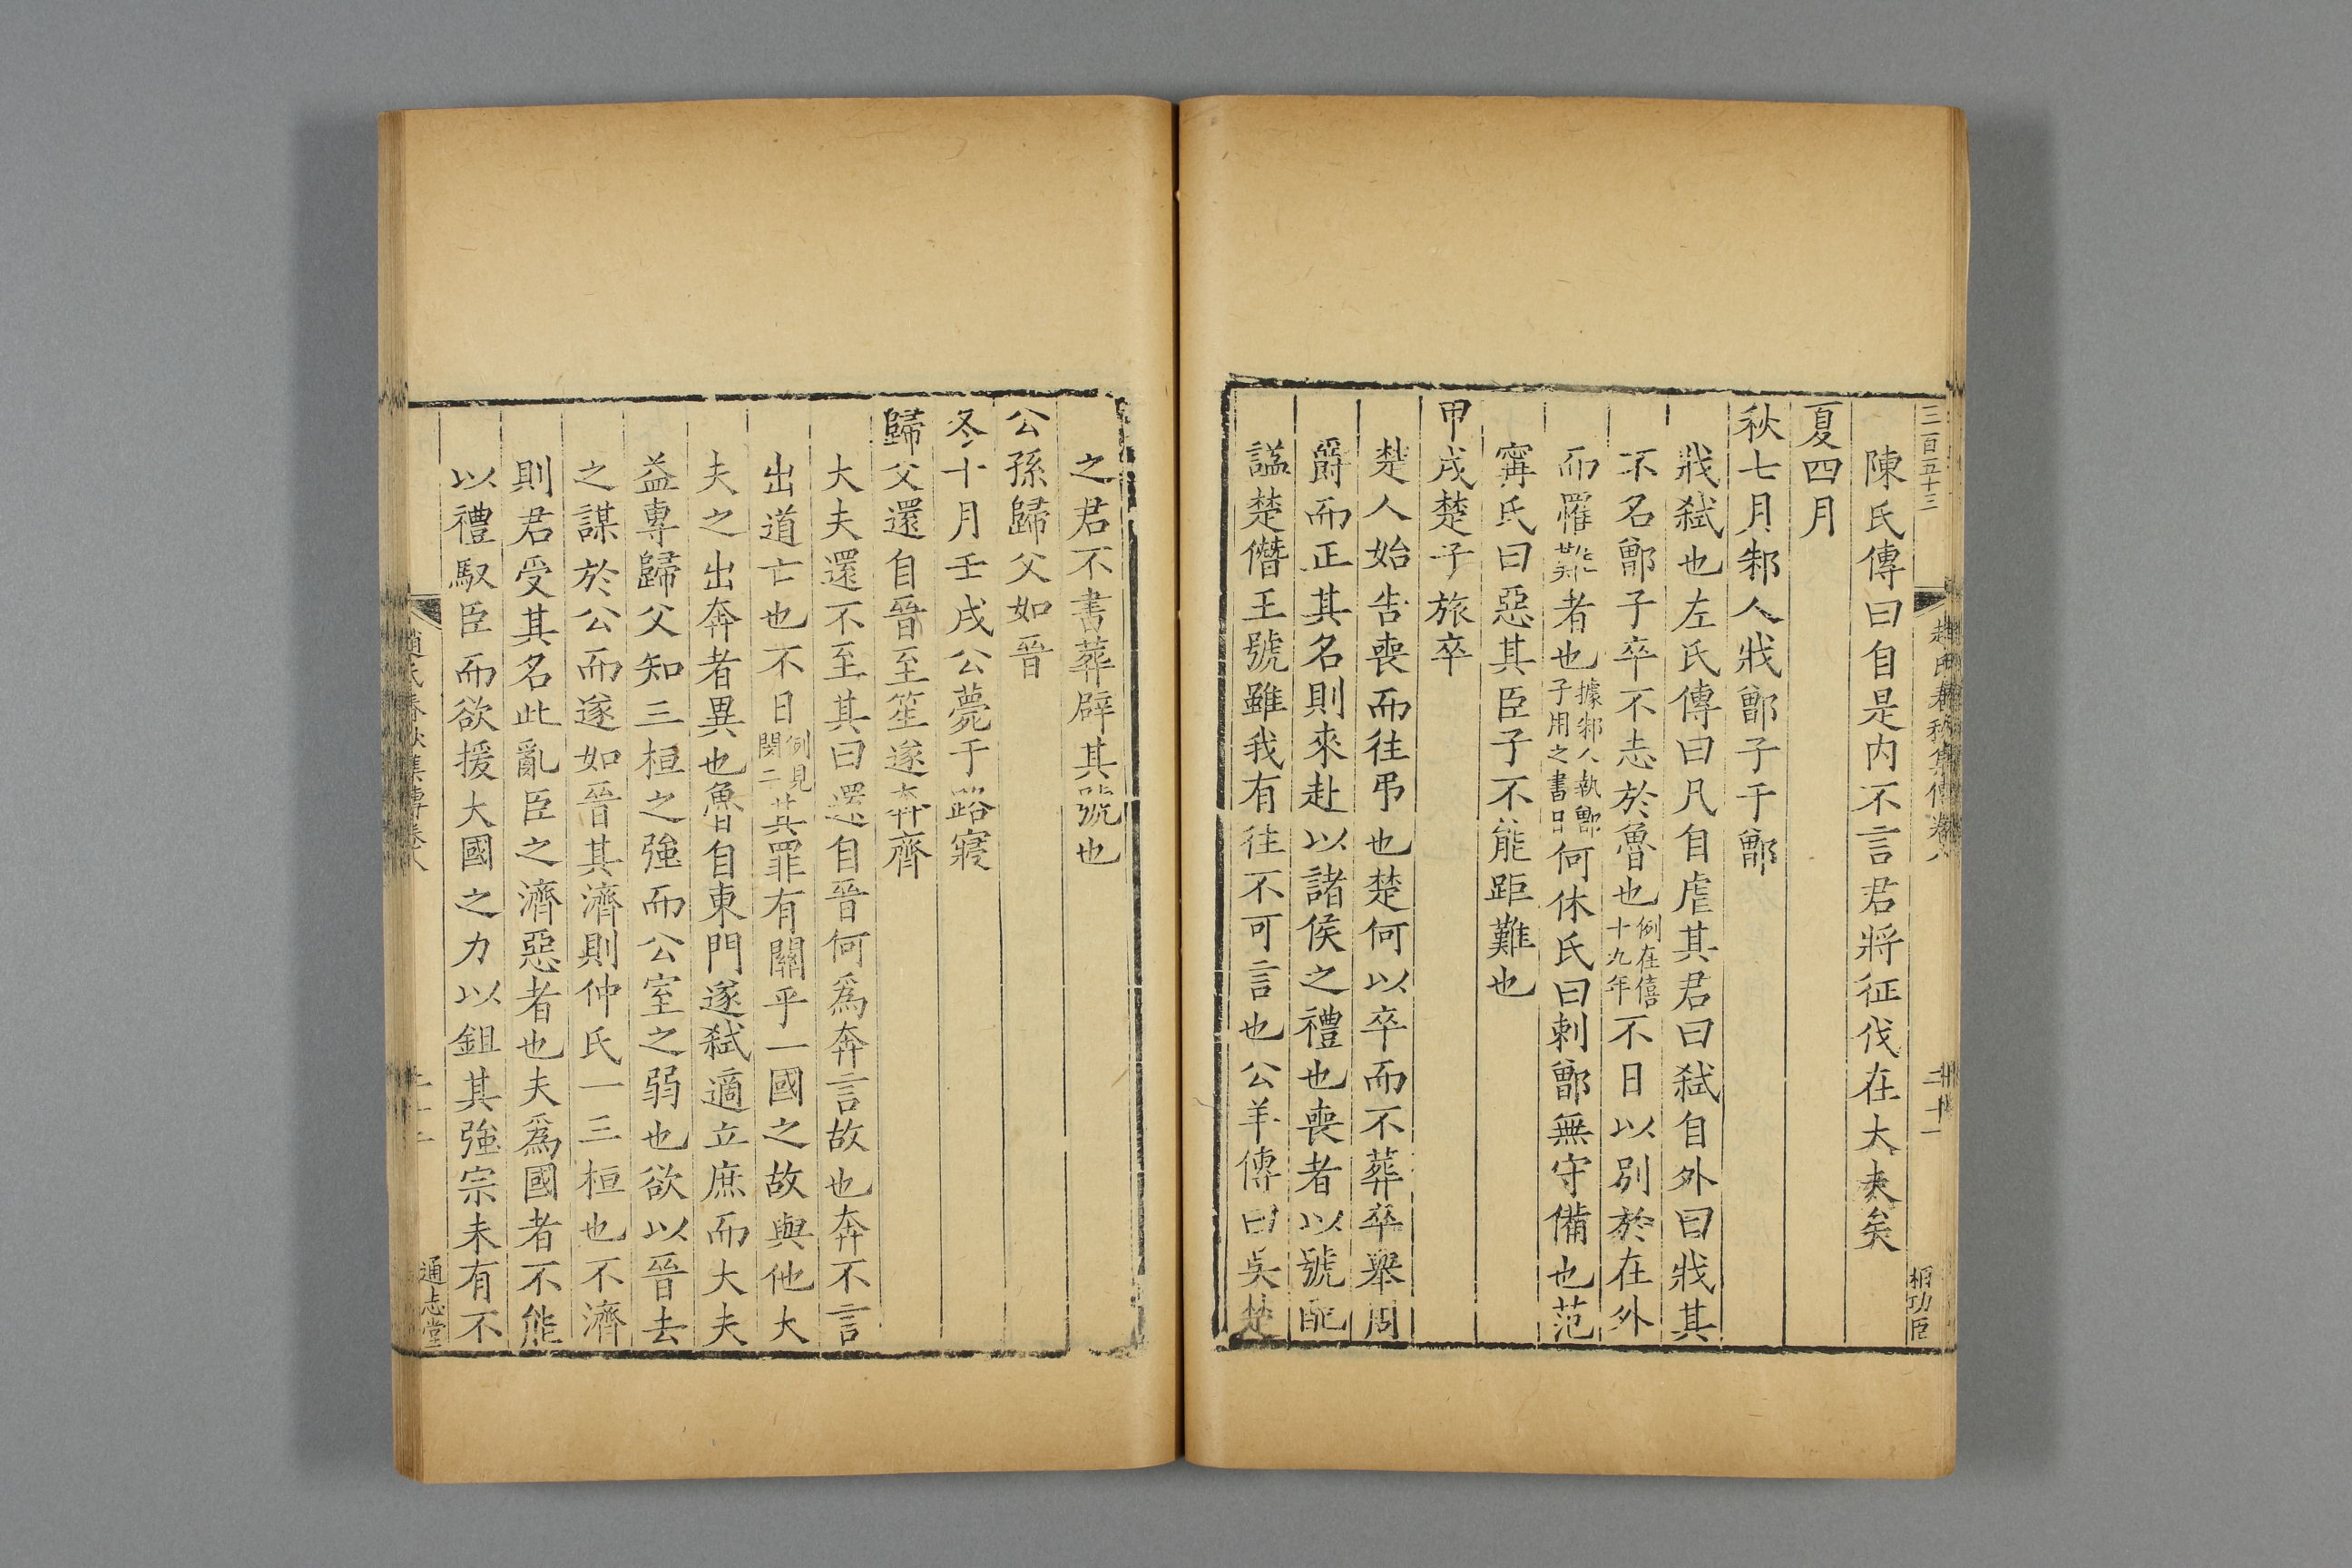 三百五十三
陳氏傳曰自是内不言君將征伐在大夫矣
夏四月
秋七月邾人戕鄫子于鄫
戕弑也左氏傳曰凡自虐其君曰弑自外曰戕其
不名鄫子卒不志於魯也例在僖十九年不日以别於在外
而罹難者也據邾人執鄫子用之書日何休氏曰刺鄫無守備也范
甯氏曰惡其臣子不能距難也
甲戌楚子旅卒
楚人始告喪而往弔也楚何以卒而不葬卒舉周
爵而正其名則來赴以諸侯之禮也喪者以號配
諡楚僭王號雖我有往不可言也公羊傳曰吳楚
之君不書葬辟其號也
公孫歸父如晉
冬十月壬戌公薨于路寢
歸父還自晉至笙遂奔齊
大夫還不至其曰還自晉何爲奔言故也奔不言
出道亡也不日例見閔二其罪有關乎一國之故與他大
夫之出奔者異也魯自東門遂弑適立庶而大夫
益專歸父知三桓之強而公室之弱也欲以晉去
之謀於公而遂如晉其濟則仲氏一三桓也不濟
則君受其名此亂臣之濟惡者也夫爲國者不能
以禮馭臣而欲援大國之力以鉏其強宗未有不
趙氏春秋集傳卷八
通志堂